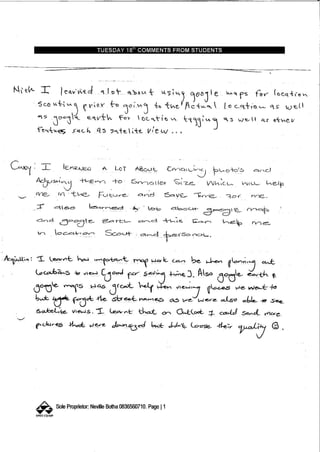 TUESDAY 18th COMMENTS FROM STUDENTS
Nick I learned a lot about using google maps for location
scouting prior to going to the Actual location as well
as google earth for location tagging as well as other
features such as satelite view ...
I learned A LOT About Emailing photo's and
Adjusting them to Smaller Size which will help
me in the Future and Save Time for me.
I also learned a lot about google map
and google Earth and this can help me
in location Scout and personal.
I learnt how important map work can be when planning out
locations to view (good for saving time). Also google earth &
google maps was great help when viewing places we want to
but forget the street names as we were also able to see
satelite views. I learnt that on Outlook I could send more
pictures that were damaged but didn't loose their quality
Sole Proprietor: Neville Botha 0836560710. Page | 1